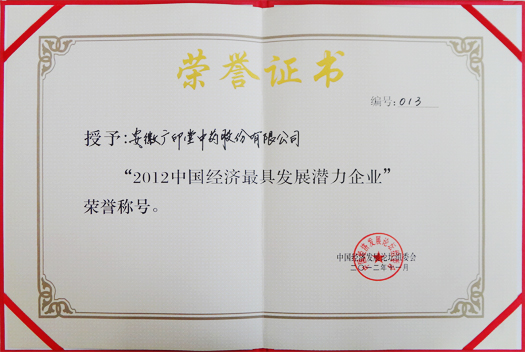 荣誉证书
编号：013
授予：安徽广印堂中药股份有限公司
“2012中国经济最具发展潜力企业”
荣誉称号。
中国经济发展论坛组委会
二〇一二年九一月